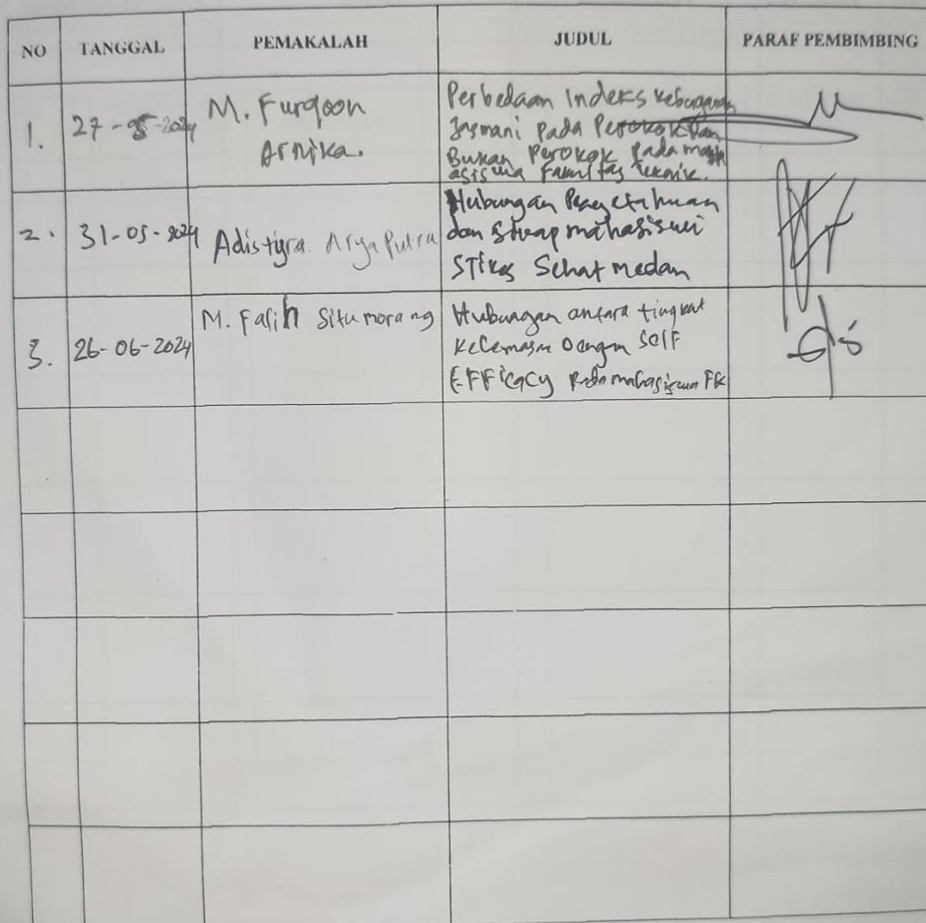 NO TANGGAL PEMAKALAH JUDUL PARAF PEMBIMBING
1. 27-05-2024 M. Furqoon Arnika. Perbedaan Indeks Kebugaran
Jasmani Pada Perokok Dan
Bukan Perokok Pada mah
asiswa Fakultas Teknik.
2. 31-05-2024 Adistyra Arya Putra Hubungan Pengetahuan
dan Sikap mahasiswi
STikes Sehat medan
3. 26-06-2024 M. Falih Situmorang Hubungan antara tingkat
Kecemasan Dengan Self
EFFicacy Pada mahasiswa FK